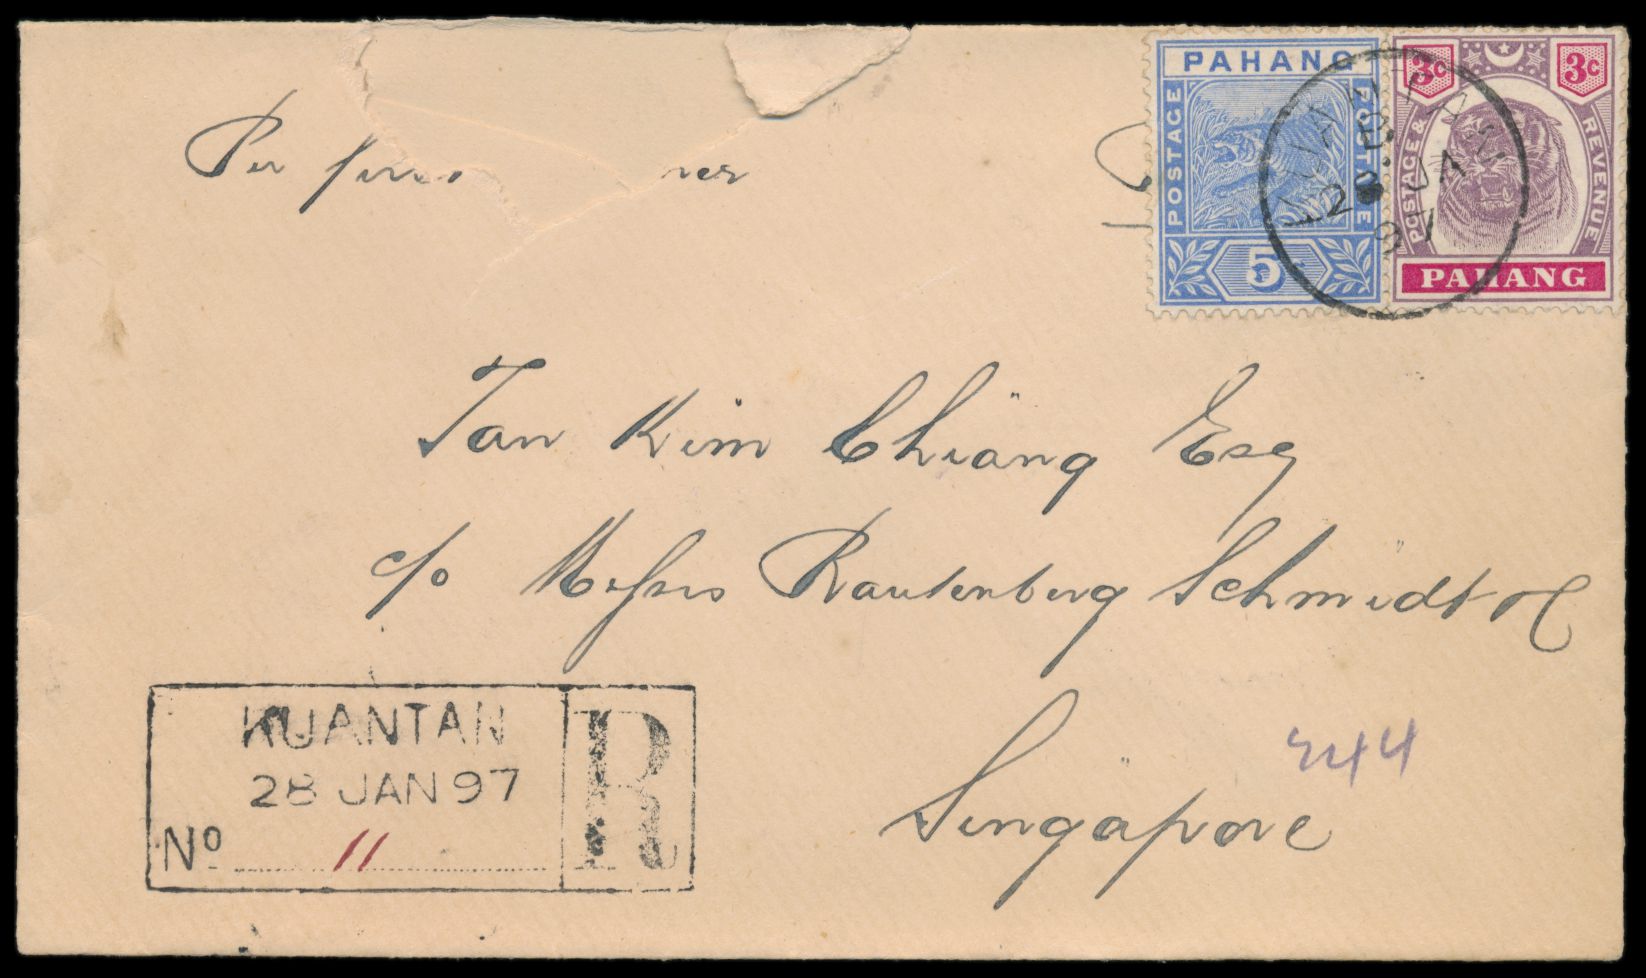 Per
PAHANG
POSTAGE
POSTAGE
5c
3c
3c
POSTAGE & REVENUE
PAHANG
KUANTAN
B
28 JA
97
Tan Kim Chiang Esq
c/o Messrs Rautenberg Schmidt & C
Singapore
744
KUANTAN
28 JAN 97
No 11
R